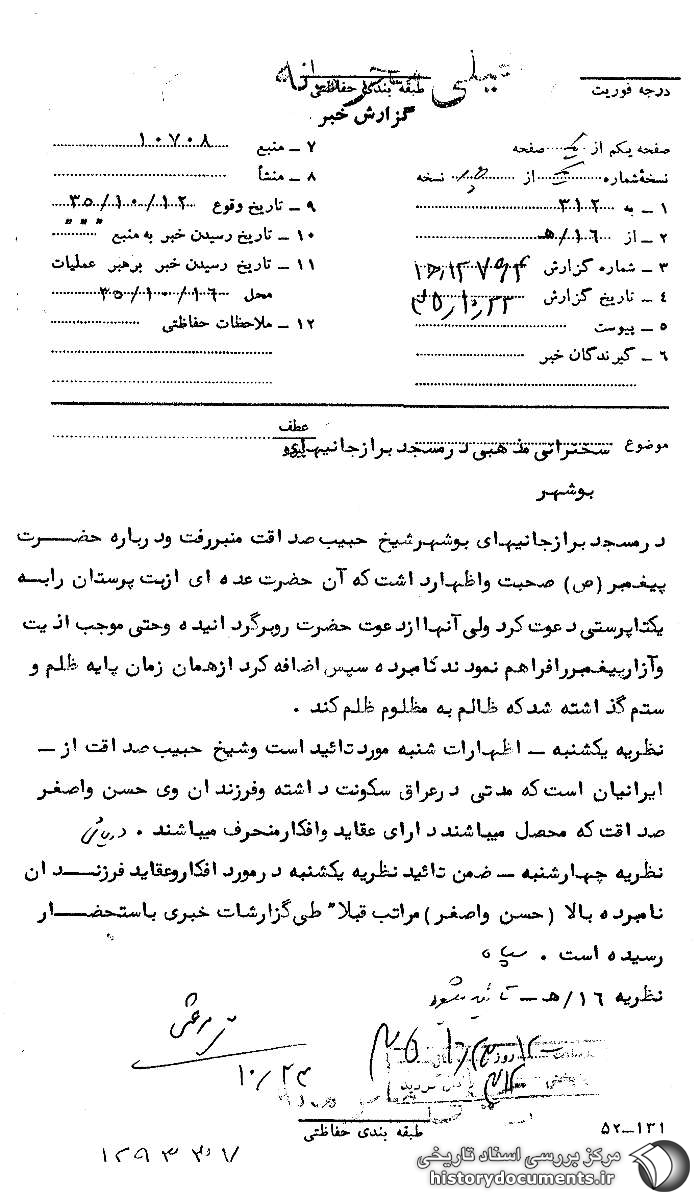 خیلی محرمانه
درجه فوریت
طبقه بندی حفاظتی
گزارش خبر
صفحه یکم از یک صفحه
نسخه شماره از نسخه
۱ ـ به ۳۱۲
۲ ـ از ۱۶/هـ
۳ ـ شماره گزارش
۴ ـ تاریخ گزارش
۵ ـ پیوست
۶ ـ گیرندگان خبر
۷ ـ منبع ۱۰۷۰۸
۸ ـ منشأ
۹ ـ تاریخ وقوع ۳۵/۱۰/۱۲
۱۰ ـ تاریخ رسیدن خبر به منبع " " "
۱۱ ـ تاریخ رسیدن خبر برهبر عملیات
محل ۳۵/۱۰/۱۶
۱۲ ـ ملاحظات حفاظتی
موضوع سخنرانی مذهبی درمسجد برازجانیهای
عطف
پیرو
بوشهر
درمسجد برازجانیهای بوشهرشیخ حبیب صداقت منبررفت ودرباره حضرت
پیغمبر (ص) صحبت واظهارداشت که آن حضرت عده ای ازبت پرستان رابه
یکتاپرستی دعوت کرد ولی آنها ازدعوت حضرت روبرگردانیده وحتی موجب اذیت
وآزارپیغمبررافراهم نمودند نامبرده سپس اضافه کرد ازهمان زمان پایه ظلم و
ستم گذاشته شد که ظالم به مظلوم ظلم کند .
نظریه یکشنبه ـ اظهارات شنبه مورد تائید است وشیخ حبیب صداقت از ـ
ایرانیان است که مدتی درعراق سکونت داشته وفرزندان وی حسن واصغر
صداقت که محصل میباشند دارای عقاید وافکارمنحرف میباشند .
نظریه چهارشنبه ـ ضمن تائید نظریه یکشنبه درمورد افکاروعقاید فرزندان
نامبرده بالا (حسن واصغر) مراتب قبلا" طی گزارشات خبری باستحضار
رسیده است .
نظریه ۱۶/هـ ـ تائید میشود
۱۰/۲۳
طبقه بندی حفاظتی
۵۲ـ۱۳۱
مرکز بررسی اسناد تاریخی
historydocuments.ir